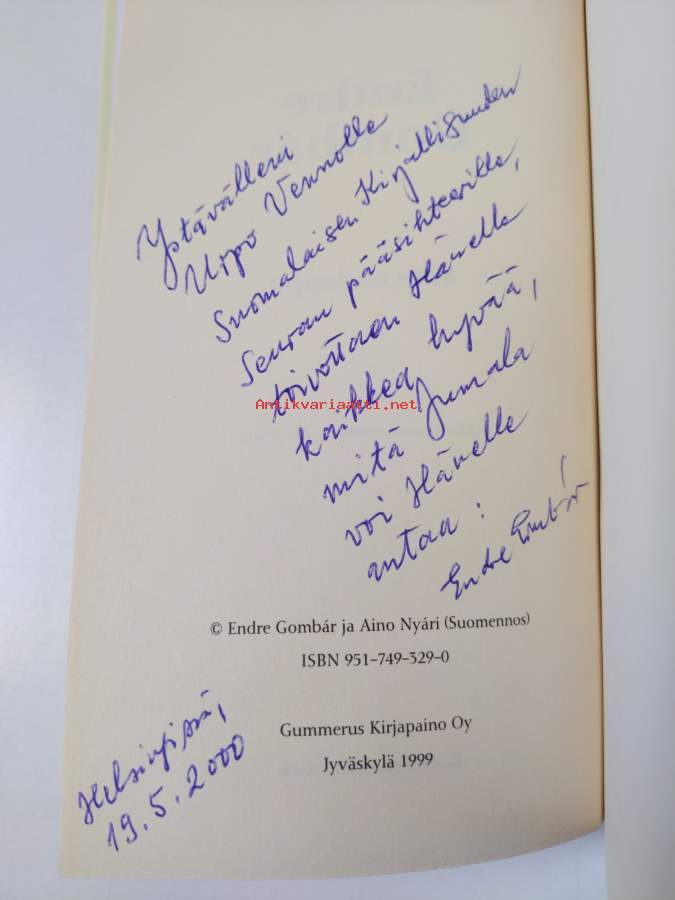 Ystävälleni
Urpo Vennolle
Suomalaisen Kirjallisuuden
Seuran pääsihteerille,
toivottaen Hänelle
kaikkea hyvää,
mitä Jumala
voi Hänelle
antaa:
Endre Gombár
Antikvariaatti.net
© Endre Gombár ja Aino Nyári (Suomennos)
ISBN 951-749-329-0
Gummerus Kirjapaino Oy
Jyväskylä 1999
Helsingissä,
19.5.2000